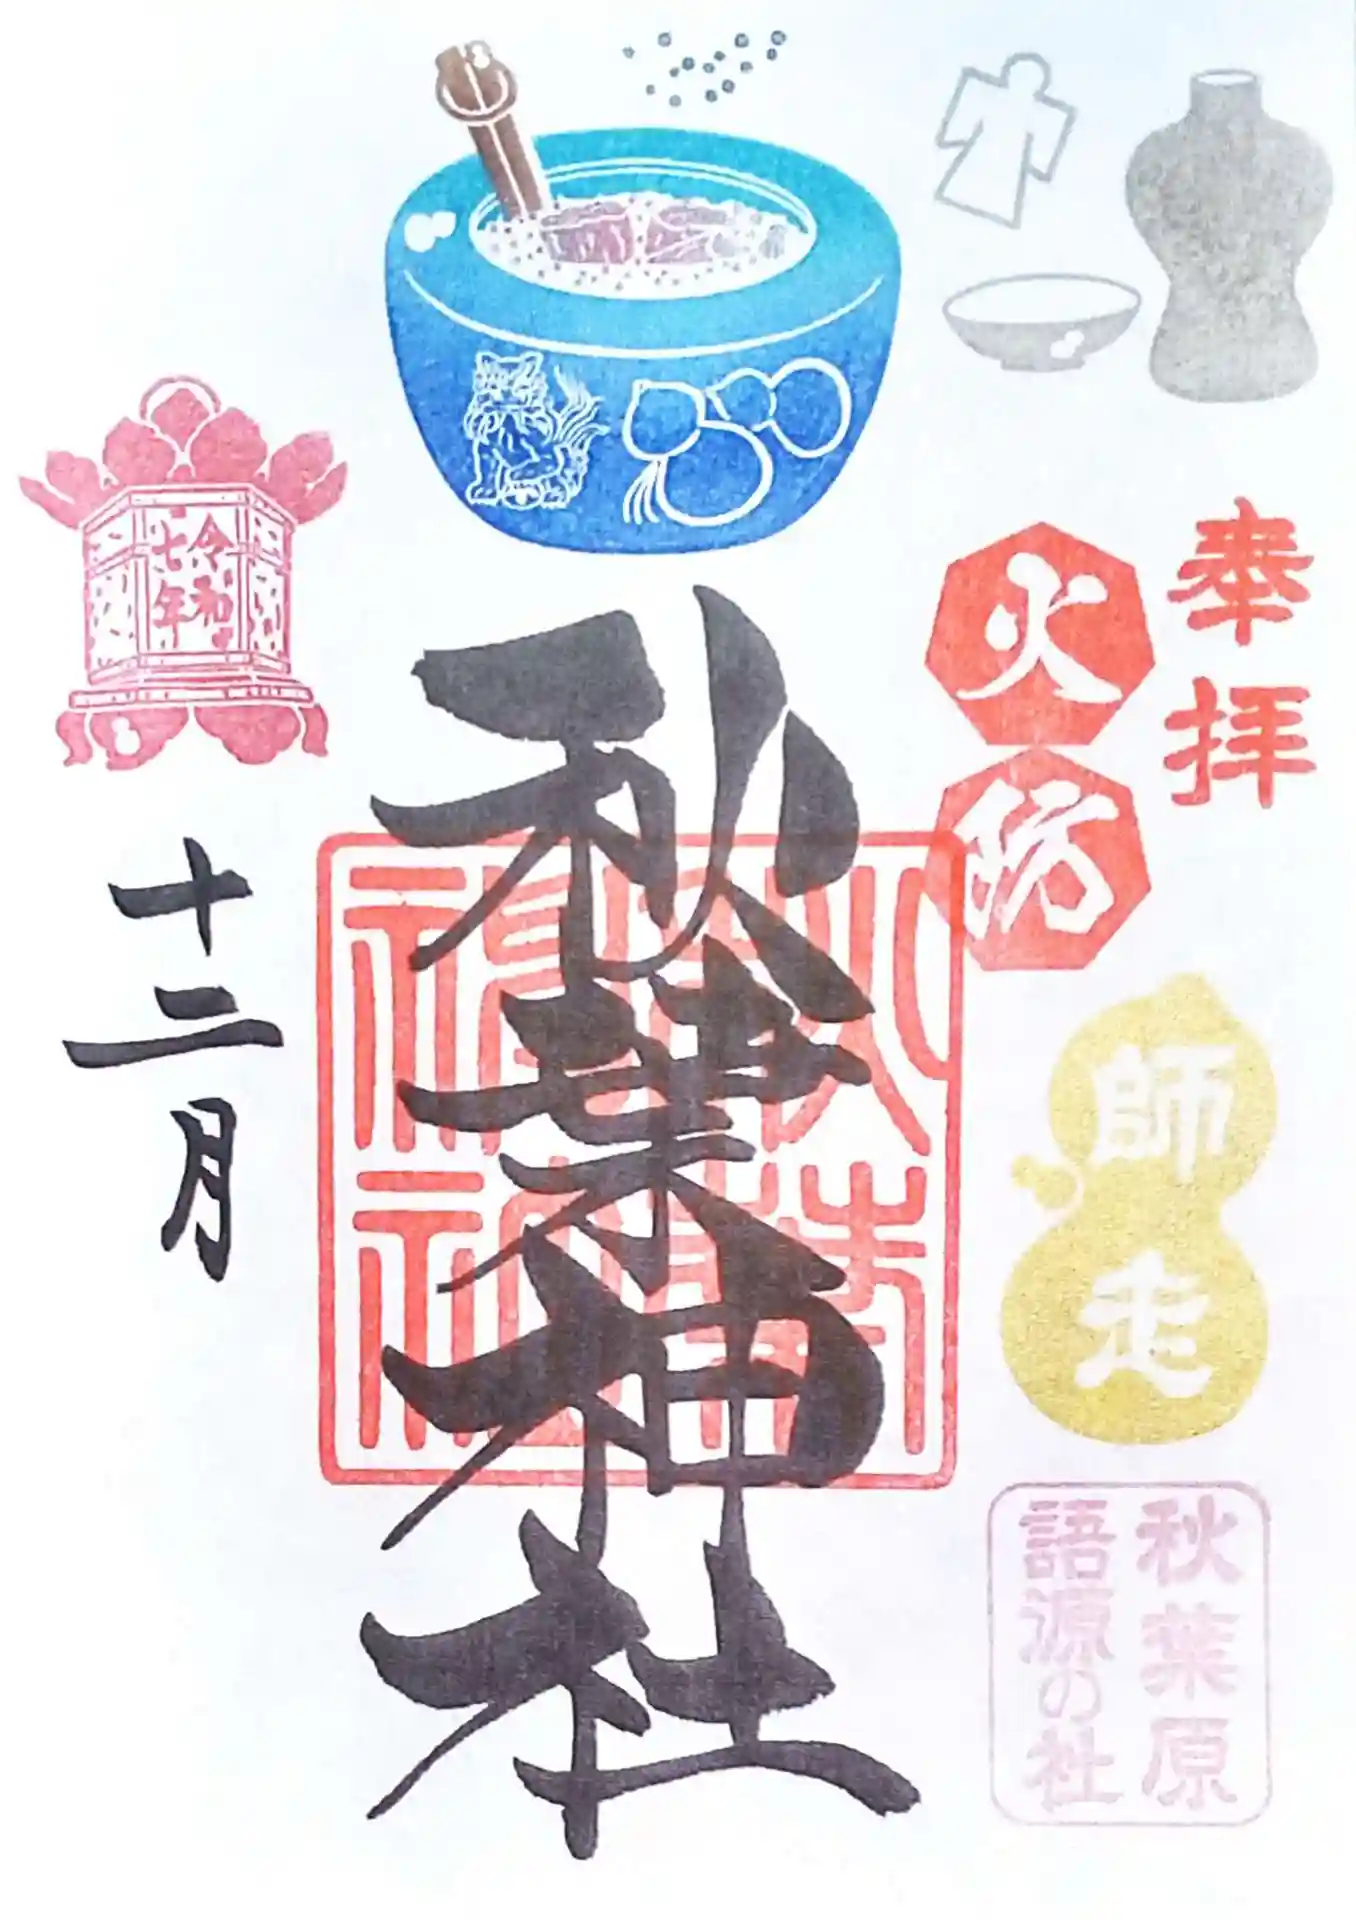 奉拝
火防
師走
秋葉原
語源の社
秋葉神社
令和
七年
十二月